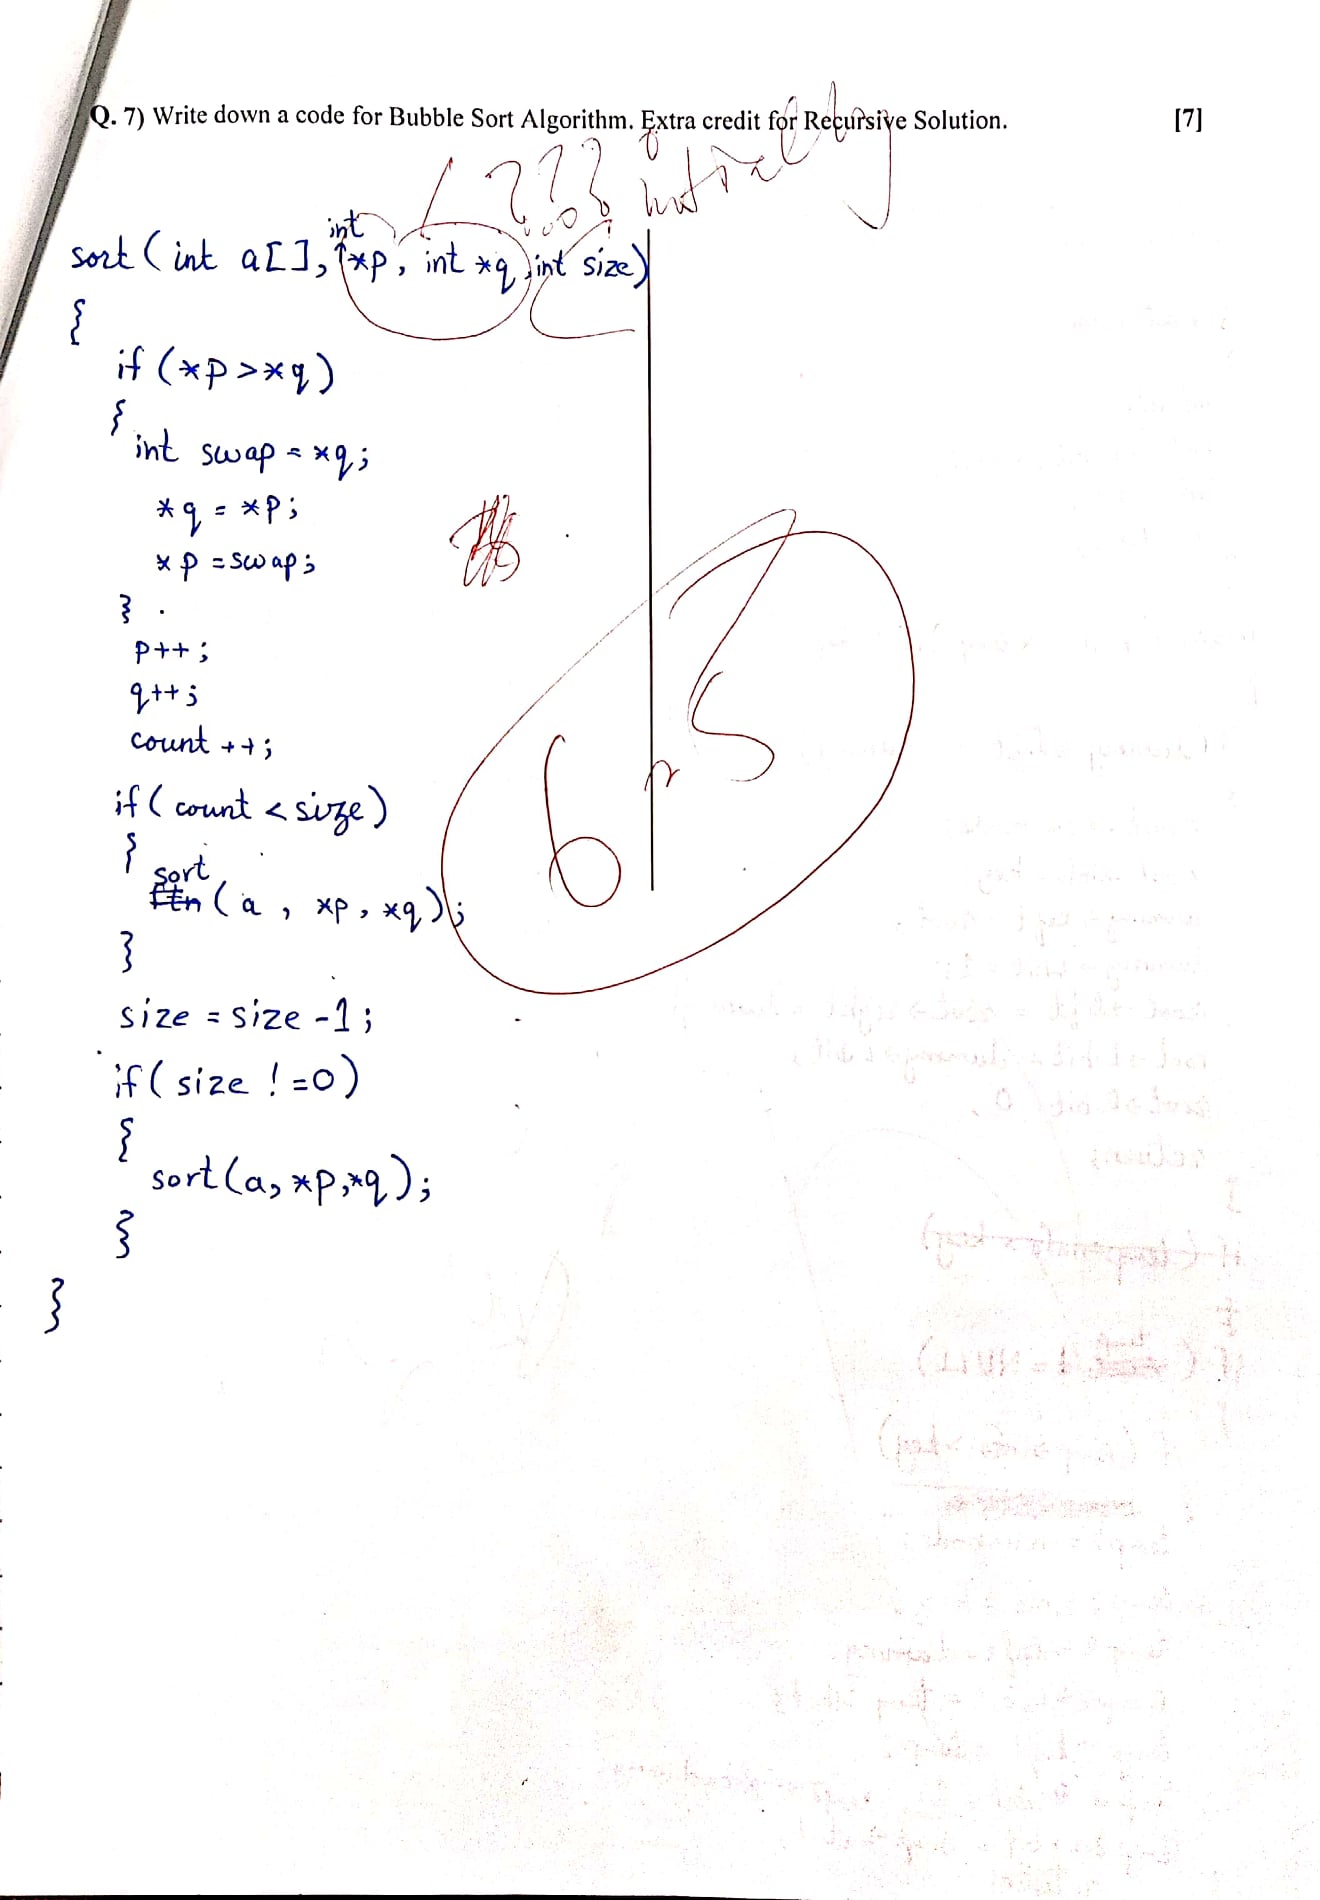 Q. 7) Write down a code for Bubble Sort Algorithm. Extra credit for Recursive Solution. [7]
??? initially
sort ( int a[], int *p, int *q, int size)
{
if (*p > *q)
{
int swap = *q;
*q = *p;
*p = swap;
}
p++ ;
q++ ;
count ++;
if ( count < size)
{
sort
ftn ( a , *p, *q );
}
size = size -1 ;
if ( size ! =0 )
{
sort (a, *p,*q );
}
}
6.5